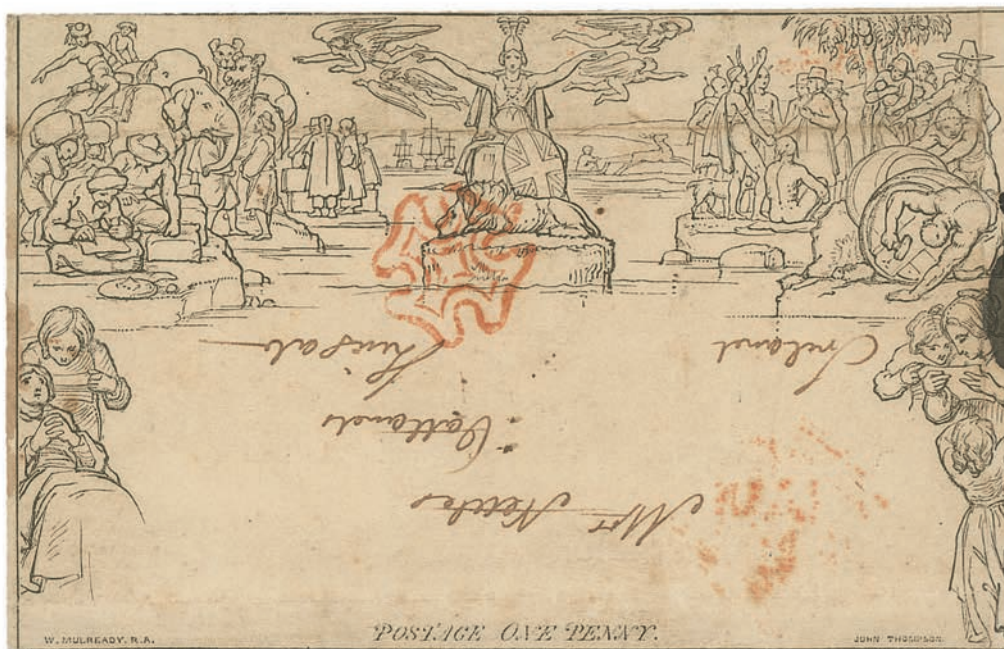 Mrs
Oatlands
Kinsale
Ireland
W. MULREADY. R.A.
POSTAGE ONE PENNY.
JOHN THOMPSON.